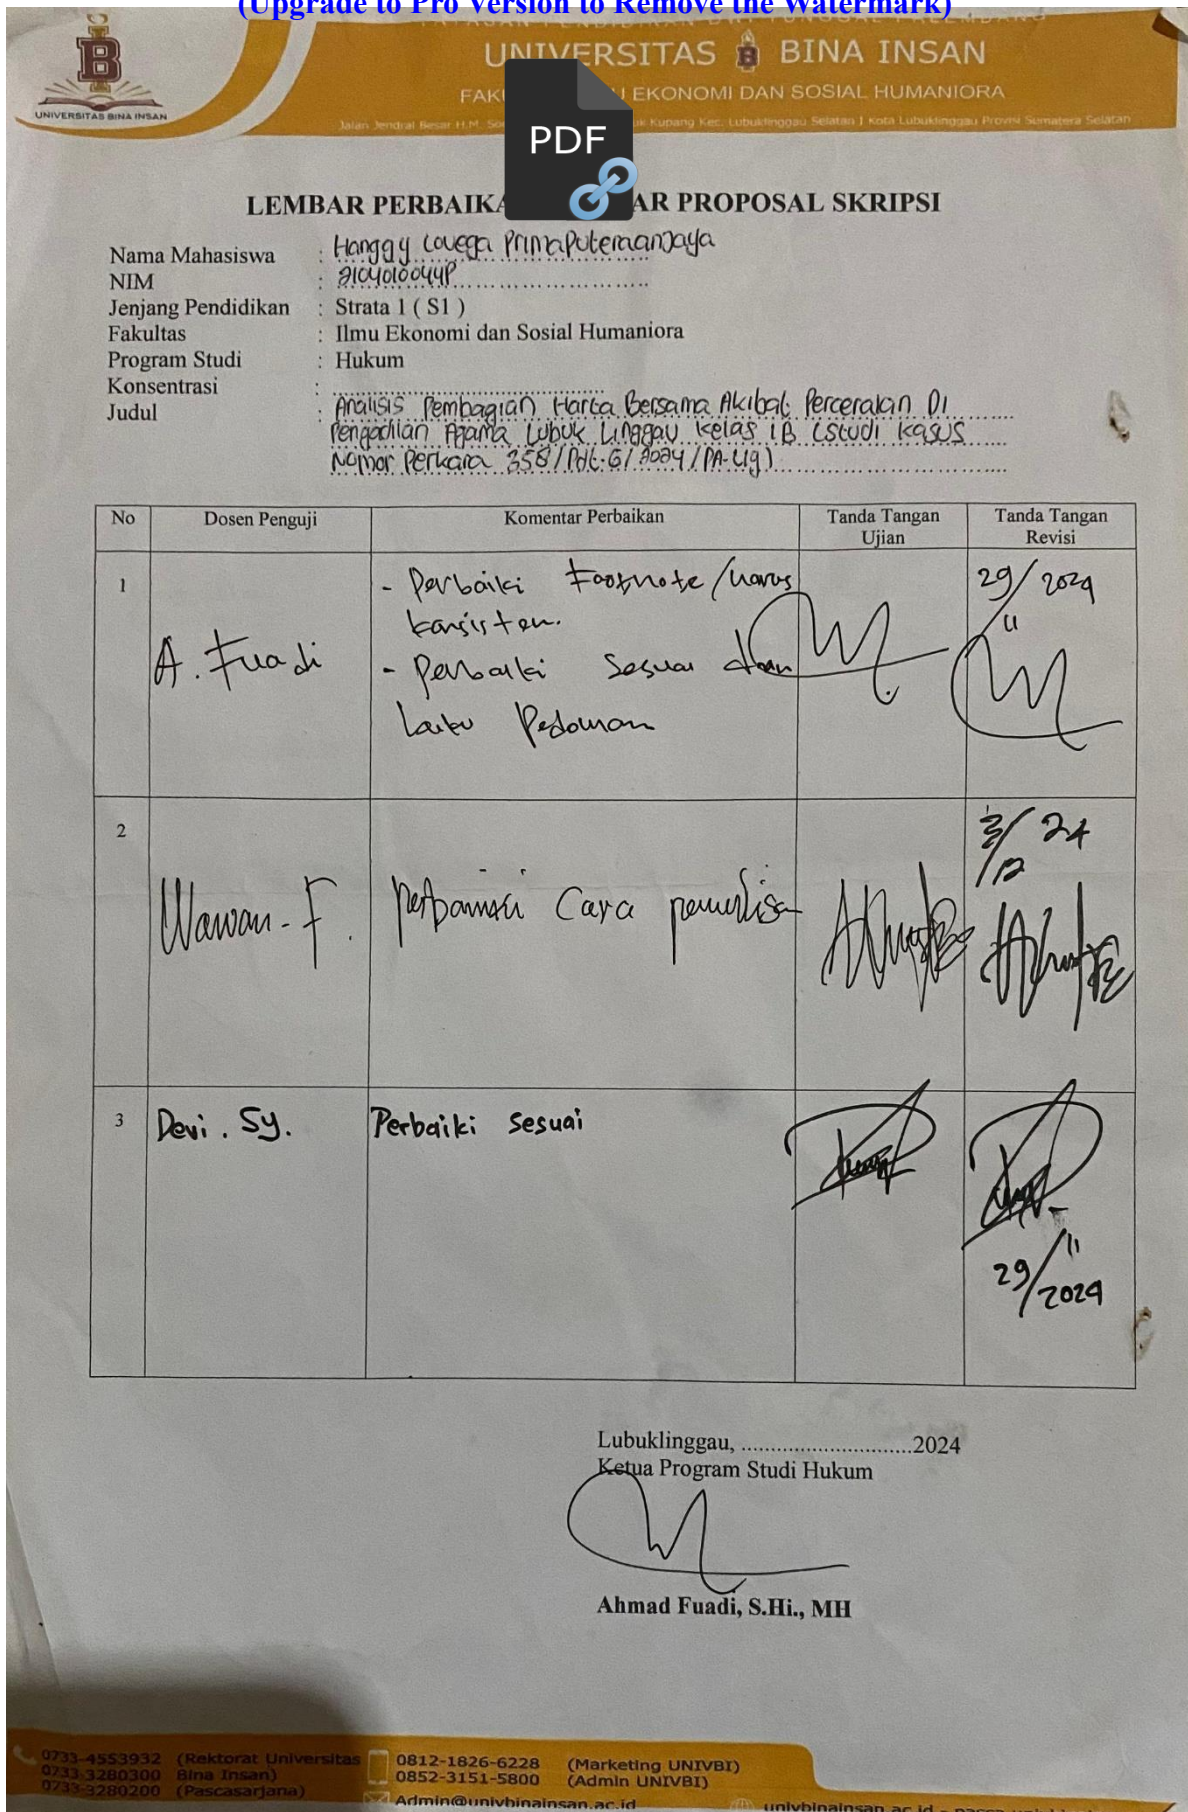 (Upgrade to Pro Version to Remove the Watermark)
UNIVERSITAS BINA INSAN
UNIVERSITAS BINA INSAN
EKONOMI DAN SOSIAL HUMANIORA
Jalan Jendral Besar H.M. Kupang Kec. Lubuklinggau Selatan I Kota Lubuklinggau Provinsi Sumatera Selatan
PDF
LEMBAR PERBAIKA AR PROPOSAL SKRIPSI
Nama Mahasiswa : Hanggy Lovega PrimaputeraanJaya
NIM : 2104010044P
Jenjang Pendidikan : Strata 1 ( S1 )
Fakultas : Ilmu Ekonomi dan Sosial Humaniora
Program Studi : Hukum
Konsentrasi :
Judul : Analisis Pembagian Harta Bersama Akibat Perceraian Di
Pengadilan Agama Lubuk Linggau Kelas 1B (Studi Kasus
Nomor Perkara 358/Pdt.G/2024/PA-Llg)
No Dosen Penguji Komentar Perbaikan Tanda Tangan Ujian Tanda Tangan Revisi
1 A. Fuadi - Perbaiki Footnote/harus
konsisten.
- Perbaiki sesuai dgn
buku Pedoman
29/11 2024
2 Wawan. F. perbaiki cara penulisan
3/12 24
3 Devi. Sy. Perbaiki sesuai
29/11 2024
Lubuklinggau, .............................2024
Ketua Program Studi Hukum
Ahmad Fuadi, S.Hi., MH
0733-4553932 (Rektorat Universitas
0733-3280300 Bina Insan)
0733-3280200 (Pascasarjana)
0812-1826-6228 (Marketing UNIVBI)
0852-3151-5800 (Admin UNIVBI)
Admin@univbinainsan.ac.id
univbinainsan.ac.id